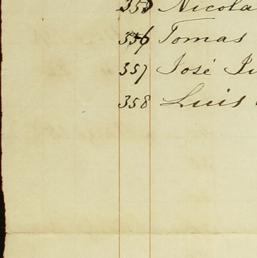 355 Nicola
356 Tomas
357 José
358 Luis